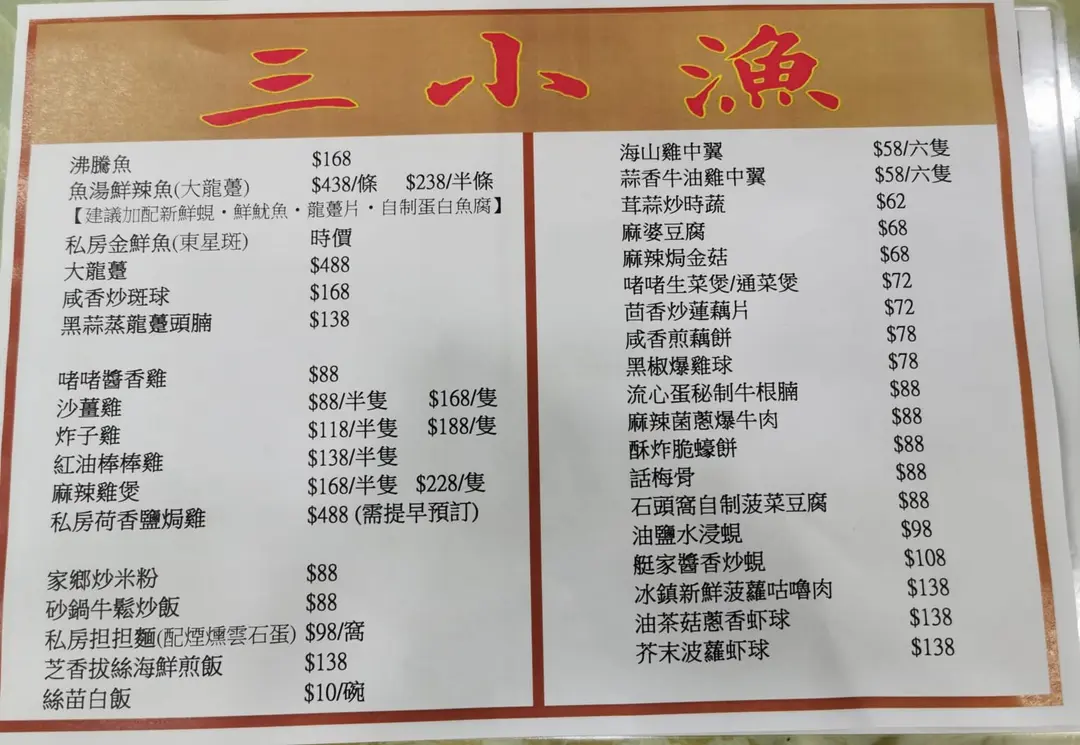 三小漁
沸騰魚 $168
魚湯鮮辣魚(大龍躉) $438/條 $238/半條
【建議加配新鮮蜆・鮮魷魚・龍躉片・自制蛋白魚腐】
私房金鮮魚(東星斑) 時價
大龍躉 $488
咸香炒斑球 $168
黑蒜蒸龍躉頭腩 $138
啫啫醬香雞 $88
沙薑雞 $88/半隻 $168/隻
炸子雞 $118/半隻 $188/隻
紅油棒棒雞 $138/半隻
麻辣雞煲 $168/半隻 $228/隻
私房荷香鹽焗雞 $488 (需提早預訂)
家鄉炒米粉 $88
砂鍋牛鬆炒飯 $88
私房担担麵(配煙燻雲石蛋) $98/窩
芝香拔絲海鮮煎飯 $138
絲苗白飯 $10/碗
海山雞中翼 $58/六隻
蒜香牛油雞中翼 $58/六隻
茸蒜炒時蔬 $62
麻婆豆腐 $68
麻辣焗金菇 $68
啫啫生菜煲/通菜煲 $72
茴香炒蓮藕片 $72
咸香煎藕餅 $78
黑椒爆雞球 $78
流心蛋秘制牛根腩 $88
麻辣菌蔥爆牛肉 $88
酥炸脆蠔餅 $88
話梅骨 $88
石頭窩自制菠菜豆腐 $88
油鹽水浸蜆 $98
艇家醬香炒蜆 $108
冰鎮新鮮菠蘿咕嚕肉 $138
油茶菇蔥香虾球 $138
芥末波蘿虾球 $138